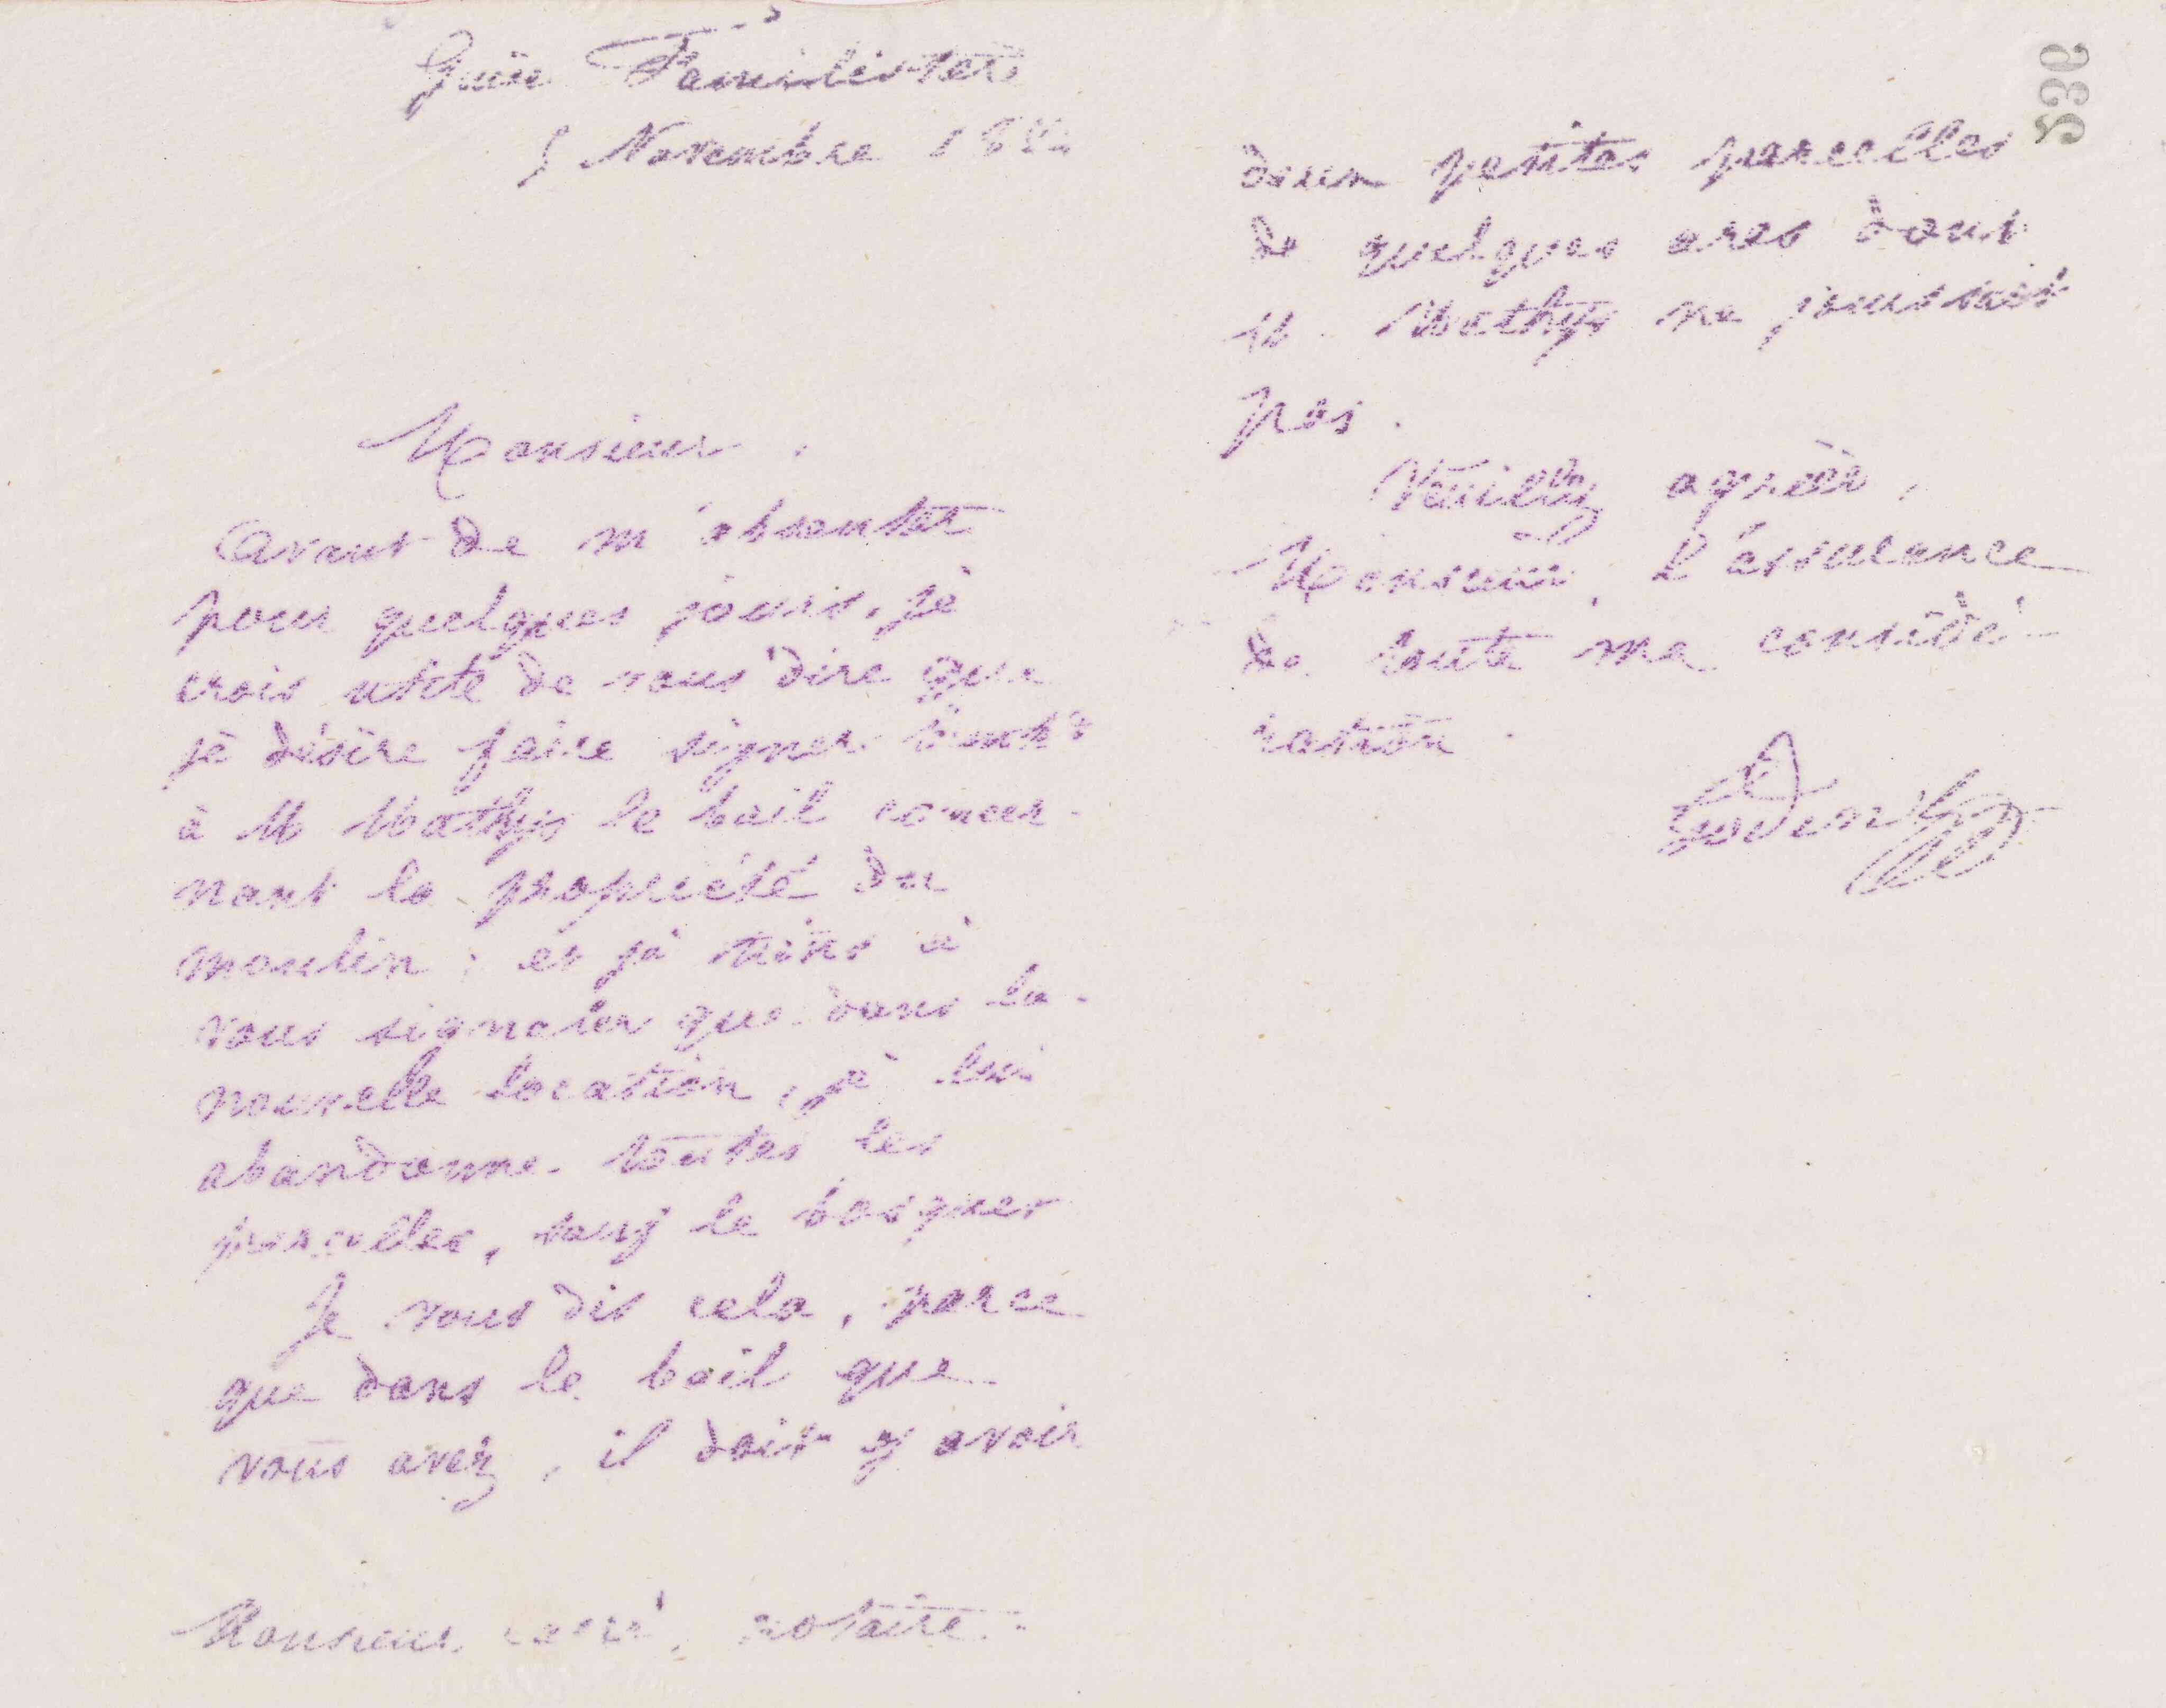 Guise Familistère
5 Novembre 188
Monsieur,
Avant de m'absenter
pour quelques jours, je
crois utile de vous dire que
je désire faire signer
à M Mathys le bail concer-
nant la propriété du
moulin ; et je tiens à
vous signaler que dans la
nouvelle location, je lui
abandonne toutes les
parcelles, sauf le bosquet
Je vous dis cela, parce
que dans le bail que
vous avez, il doit y avoir
Monsieur notaire.
536
deux petites parcelles
de quelques ares dont
M. Mathys ne jouissait
pas.
Veuillez agréer,
Monsieur, l'assurance
de toute ma considé-
ration.
Godin